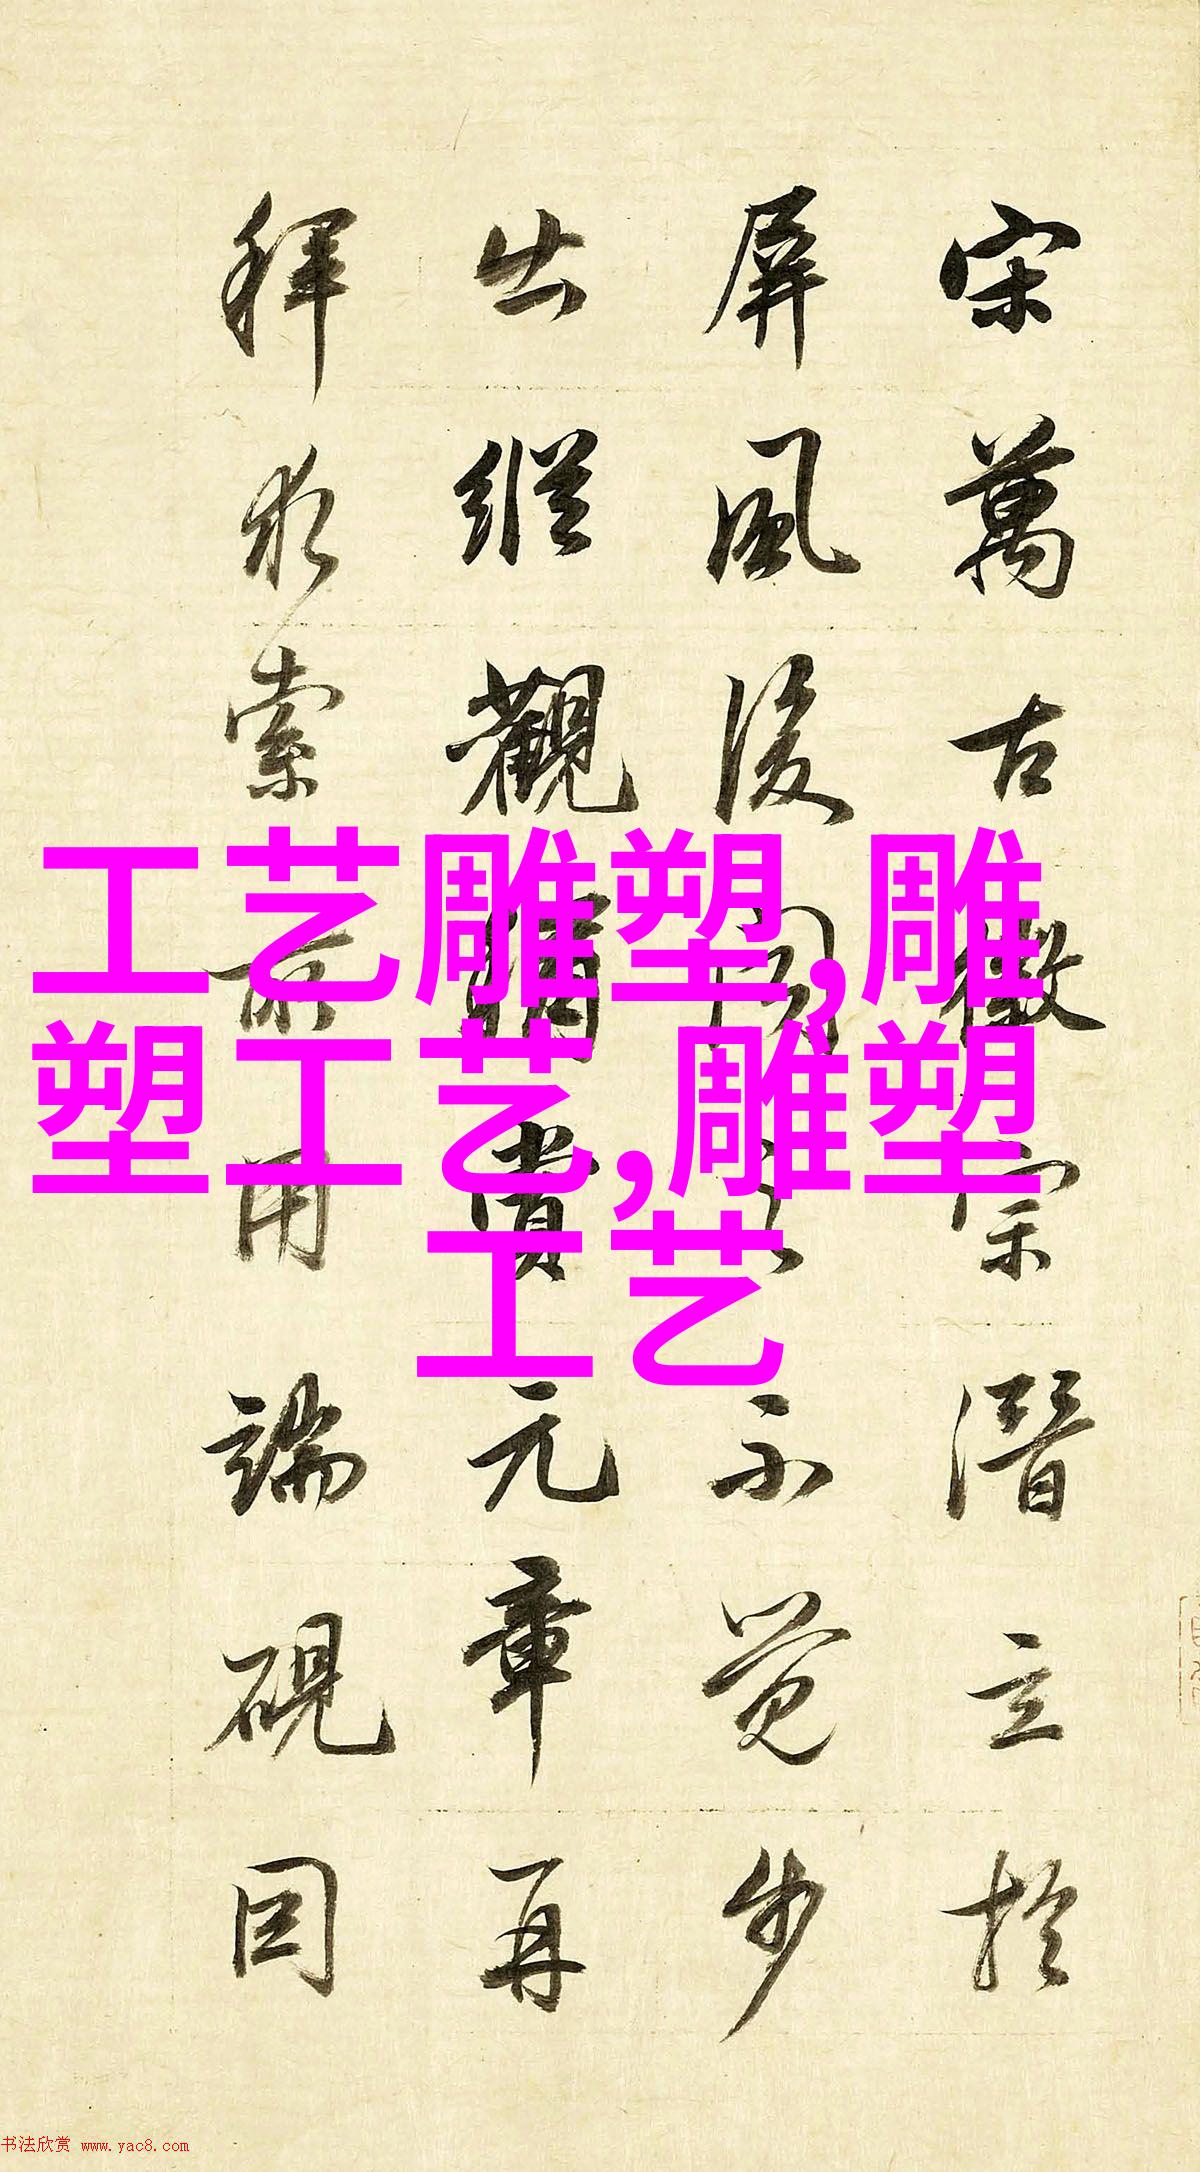 宋萬古徽宗潛立於
屏風後聞之不覺步
出縱觀稱賞元章再
拜求索所用端硯因
工艺雕塑,雕
塑工艺,雕塑
工艺
书法欣赏 www.yac8.com